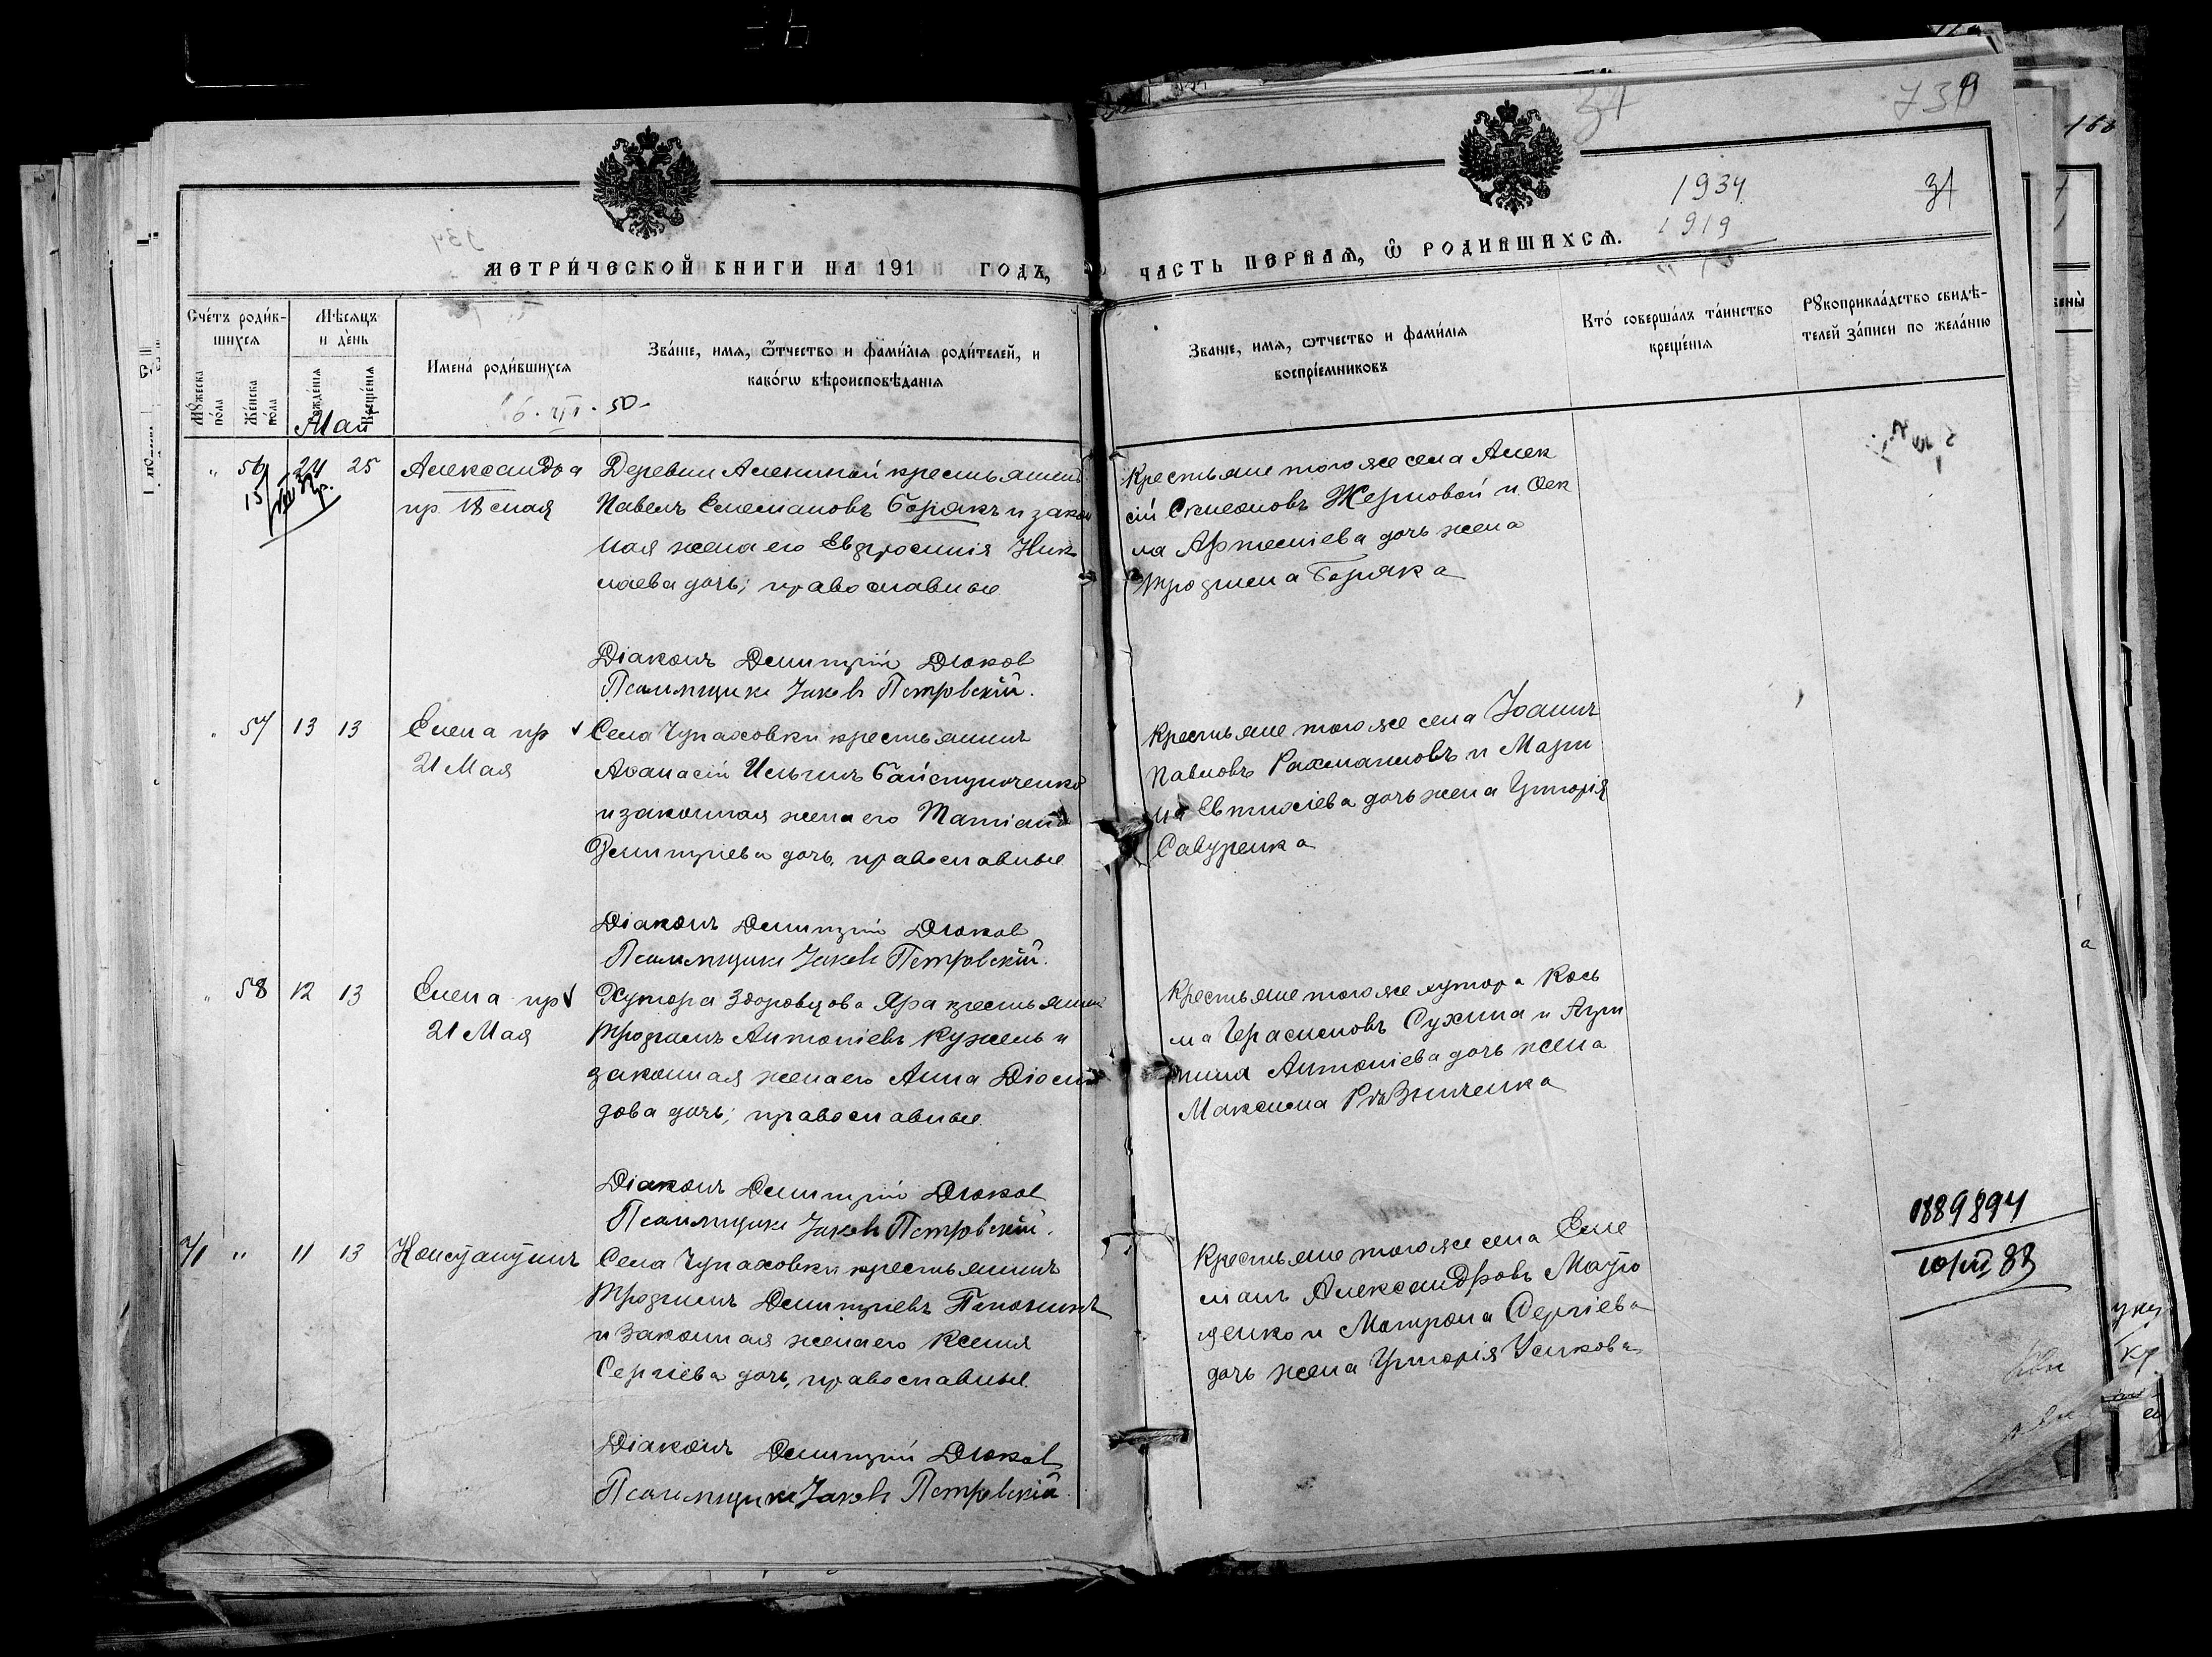 739
34
168
1934
1919
31
МЕТРИ́ЧЕСКОЙ КНИГИ НА 191 ГОДЪ,
ЧАСТЬ ПЕРВАѦ, Ѡ РОДИВШИХСѦ.
Сче́тъ роди́в-
шихсѧ
Мѣсѧцъ
и де́нь
Имена́ роди́вшихсѧ
Зва́нїе, имѧ, ѿтчество и фами́лїѧ роди́телей, и
како́гѡ вѣроисповѣданїѧ
Званїе, имѧ, ѿтчество и фами́лїѧ
воспрїемниковъ
Кто́ соверша́лъ та́инство
креще́нїѧ
Рꙋкоприкла́дство свидѣ-
телей за́писи по жела́нїю
Мꙋжеска
по́ла
Же́нска
по́ла
Рожде́нїѧ
Креще́нїѧ
Май
6. VI. 50
" 56 24 25
Александра
пр
Деревни Алениной крестьянинъ
Павелъ Борякъ и закон
ная жена его Евдросинія Ник
лаева дочь; православные
Крестьяне тогоже села Алек
сій Симеоновъ Жерновой и Фек
ла Артеміева дочь жена
Трофима Боряка
Діаконъ Димитрій Дюков
Псаломщикъ Іаковъ Петровскій.
" 57 13 13
Елена пр
21 Мая
Села Чупаховки крестьянинъ
Аѳанасій Ильинъ
и законная жена его Татіана
Димитріева дочь, православные
Крестьяне тогоже села Іоаннъ
Павловъ Рахмановъ и Мари
на Евтихіева дочь жена Григорія
Савуренка
Діаконъ Димитрій Дюков
Псаломщикъ Іаковъ Петровскій.
" 58 12 13
Елена пр
21 Мая
Хутора Здоровцова Яра крестьянинъ
Трофимъ Антоніевъ Кужель и
законная жена его Анна Діоми
дова дочь; православные.
Крестьяне тогоже хутора Кось
ма Герасимовъ Сухина и Агри
пина Антоніева дочь жена
Максима Рѣзниченка
Діаконъ Димитрій Дюков
Псаломщикъ Іаковъ Петровскій.
71 " 11 13
Константинъ
Села Чупаховки крестьянинъ
Трофимъ Димитріевъ
и законная жена его Ксенія
Сергіева дочь, православные.
Крестьяне тогоже села Еме
ліанъ Александровъ
и Матрона Сергіева
дочь жена Григорія Усикова
0889894
10/VI 83
Діаконъ Димитрій Дюков
Псаломщикъ Іаковъ Петровскій.